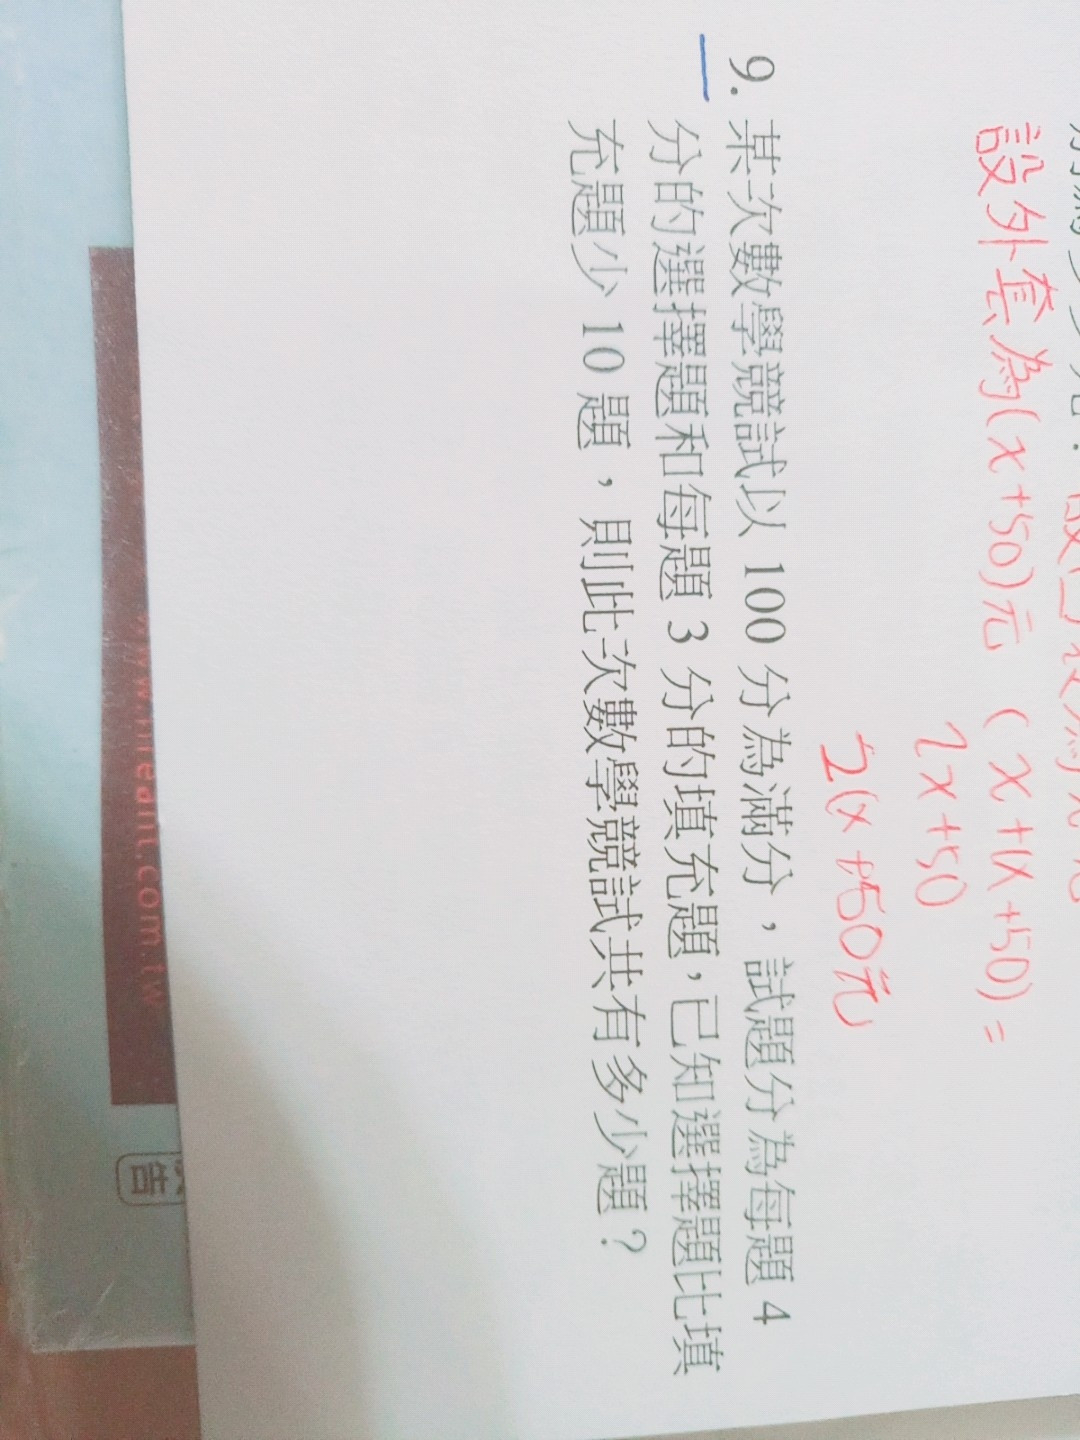 設外套為(x+50)元 (x+(x+50)=
2x+50
2(x+50元
9. 某次數學競試以 100 分為滿分，試題分為每題 4
分的選擇題和每題 3 分的填充題，已知選擇題比填
充題少 10 題，則此次數學競試共有多少題？
www.hleant.com.tw
告